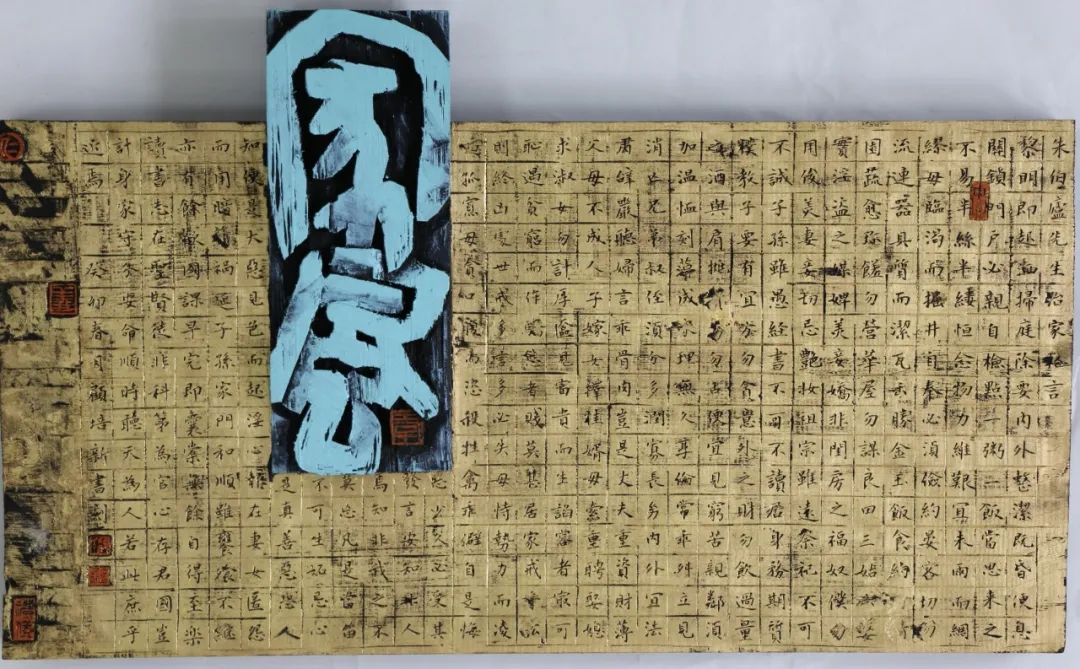 朱伯盧先生治家格言
黎明即起洒掃庭除要内外整潔既昏便息
關鎖門戶必親自檢點一粥一飯當思來之
不易半絲半縷恒念物力維艱宜未雨而綢
繆毋臨渴而掘井自奉必須儉約宴客切勿
流連器具質而潔瓦缶勝金玉飯食約
園蔬愈珍饈勿營華屋勿謀良田三姑六婆
實淫盜之媒婢美妾嬌非閨房之福奴僕勿
用俊美妻妾切忌艷妝祖宗雖遠祭祀不可
不誠子孫雖愚經書不可不讀居身務期質
樸教子要有宜方勿貪意外之財勿飲過量
之酒與肩挑易勿占便宜見窮苦親鄰須
加溫恤刻薄成家理無久享倫常乖舛立見
消亡兄弟叔侄須分多潤寡長幼内外宜法
肅辭嚴聽婦言乖骨肉豈是丈夫重資財薄
父母不成人子嫁女擇佳婿毋索重聘娶媳
求淑女勿計厚奩見富貴而生諂容者最可
恥遇貧窮而作驕態者賤莫甚居家戒爭訟
則終凶處世戒多言多必失毋恃勢力而凌
逼孤寡毋貪口腹而恣殺牲禽乖僻自是悔
少久必受其
發言安知非人
焉知非我之不
莫忘凡是當留
不可生妒忌心
是真善惡恐人
知便是大惡見色而起淫心報在妻女匿怨
而用暗箭禍延子孫家門和順雖饔飧不繼
亦有餘歡國課早完即囊橐無餘自得至樂
讀書志在聖賢徒非科第為官心存君國豈
計身家守分安命順時聽天為人若此庶乎
近焉 癸卯春月顧培新書刻